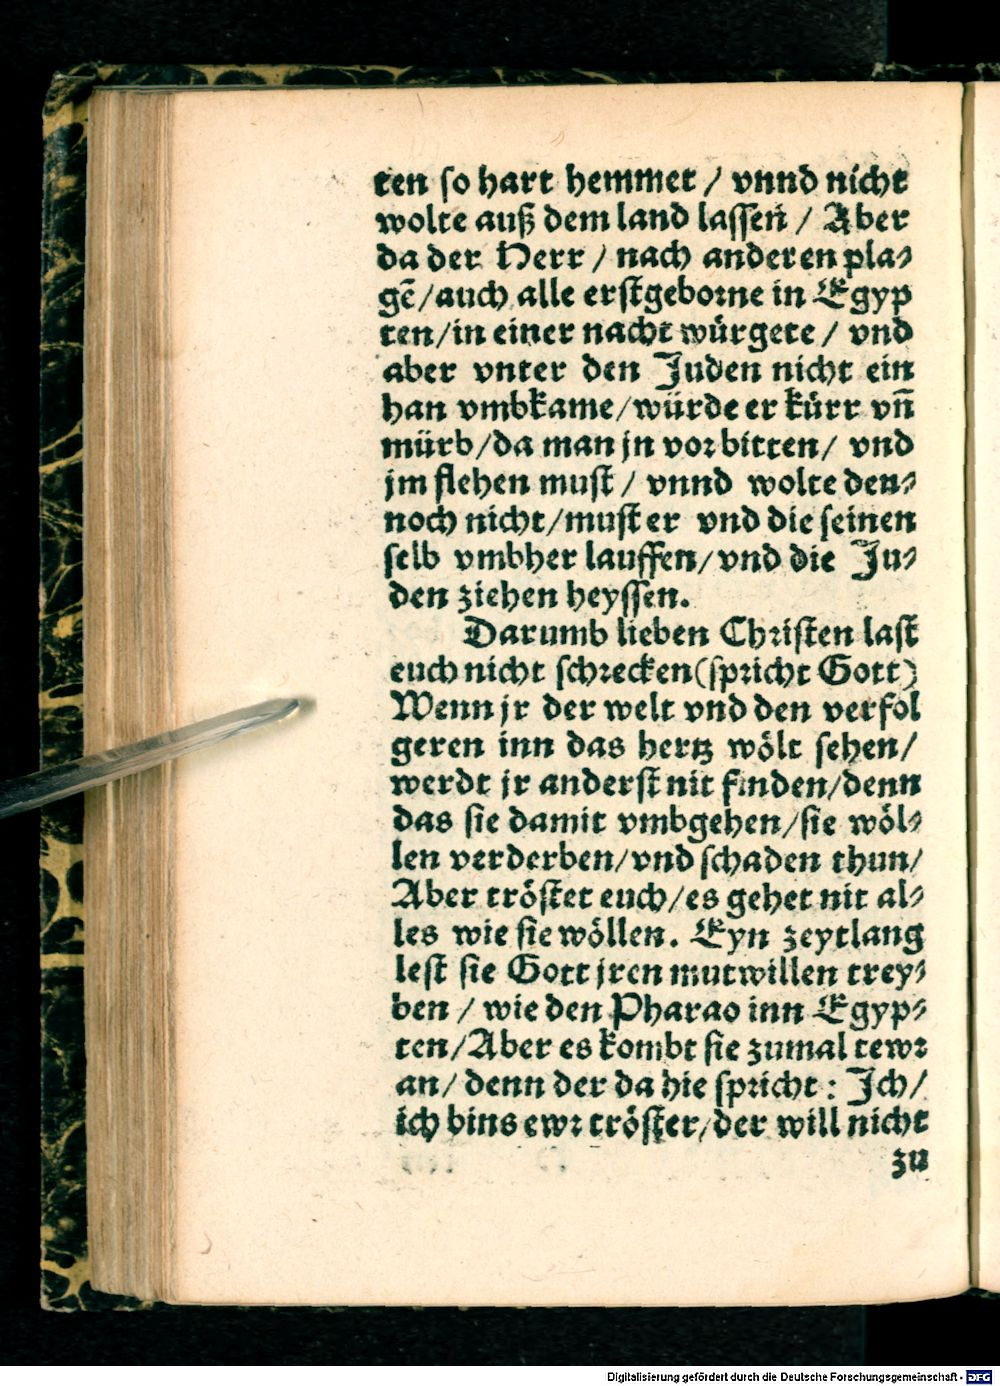 ten so hart hemmet / vnnd nicht
wolte auß dem land lassen / Aber
da der Herr / nach anderen pla⸗
gē / auch alle erstgeborne in Egyp
ten / in einer nacht würgete / vnd
aber vnter den Juden nicht ein
han vmbkame / würde er kürr vñ
mürb / da man jn vor bitten / vnd
jm flehen must / vnnd wolte den⸗
noch nicht / must er vnd die seinen
selb vmbher lauffen / vnd die Ju⸗
den ziehen heyssen.
Darumb lieben Christen last
euch nicht schrecken (spricht Gott)
Wenn jr der welt vnd den verfol
geren inn das hertz wölt sehen /
werdt jr anderst nit finden / denn
das sie damit vmbgehen / sie wöl⸗
len verderben / vnd schaden thun /
Aber tröstet euch / es gehet nit al⸗
les wie sie wöllen. Eyn zeytlang
lest sie Gott jren mutwillen trey⸗
ben / wie den Pharao inn Egyp⸗
ten / Aber es kombt sie zumal tewr
an / denn der da hie spricht : Ich /
ich bins ewr tröster / der will nicht
zu
Digitalisierung gefördert durch die Deutsche Forschungsgemeinschaft - DFG